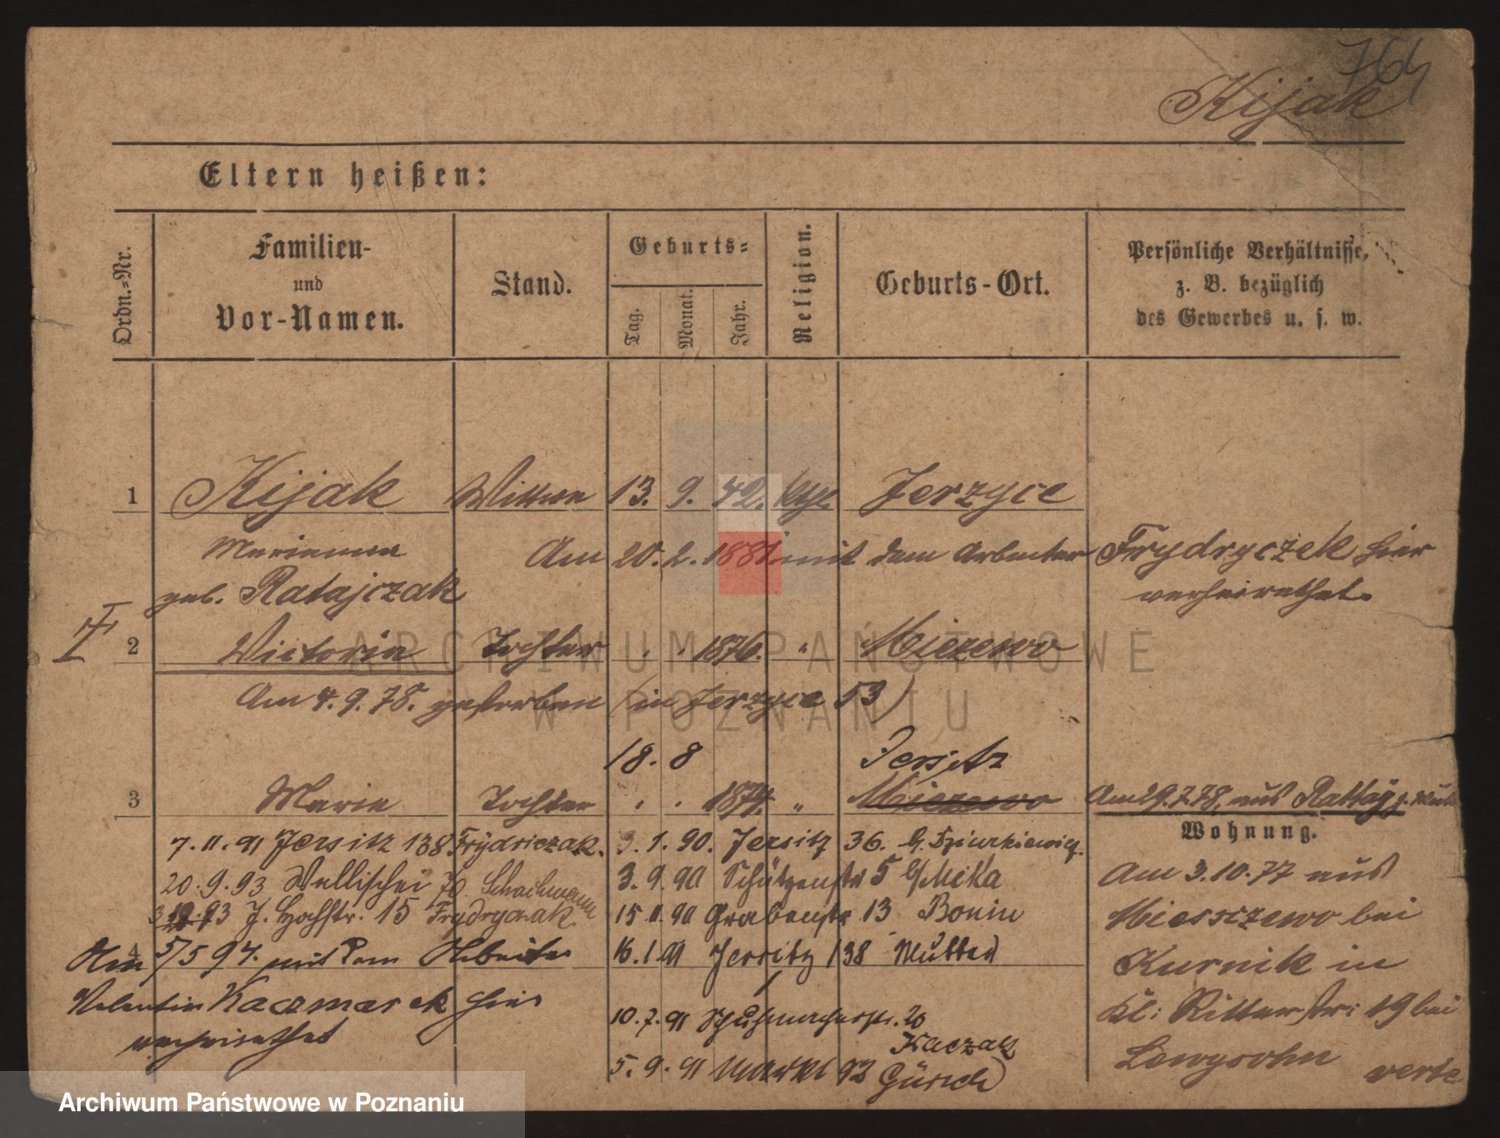 764
Kijak
Eltern heißen:
Ordn.-Nr.
Familien-
und
Vor-Namen.
Stand.
Geburts-
Tag.
Monat.
Jahr.
Religion.
Geburts-Ort.
Persönliche Verhältnisse,
z. B. bezüglich
des Gewerbes u. s. w.
1 Kijak Wittwe 13. 9. 42. Jerzyce
Marianna
geb. Ratajczak
Am 20. 2. 1881 mit dem Arbeiter Frydryczek hier
verheirathet.
2 Victoria Tochter . . 1876. " Miezewo
Am 4. 9. 78. gestorben (in Jerzyce 53)
18. 8 Jersitz
3 Marie Tochter . . 1874. " Miezewo Am 29.7.78. aus Rattay
Wohnung.
7. 11. 91 Jersitz 138 Frydriczak.
20. 9. 93 Wallischei
J. Hochstr. 15 Frydryczak
4
Am 5/5 97. mit dem Arbeiter
Valentin Kaczmarek hier
verheirathet
3. 1. 90. Jersitz 36.
3. 9. 90 Schützenstr 5 Mika
15. 11. 90 Grabenstr 13 Bonin
16. 1. 91 Jersitz 138 Mutter
10. 7. 91 Schuhmacherstr. 20
Kaczak
5. 9. 91 Markt 92 Gürich
Am 3. 10. 77 aus
Miesczewo bei
Kurnik in
Kl: Ritterstr: 19 bei
Lewysohn
verte
ARCHIWUM PAŃSTWOWE
W POZNANIU
Archiwum Państwowe w Poznaniu